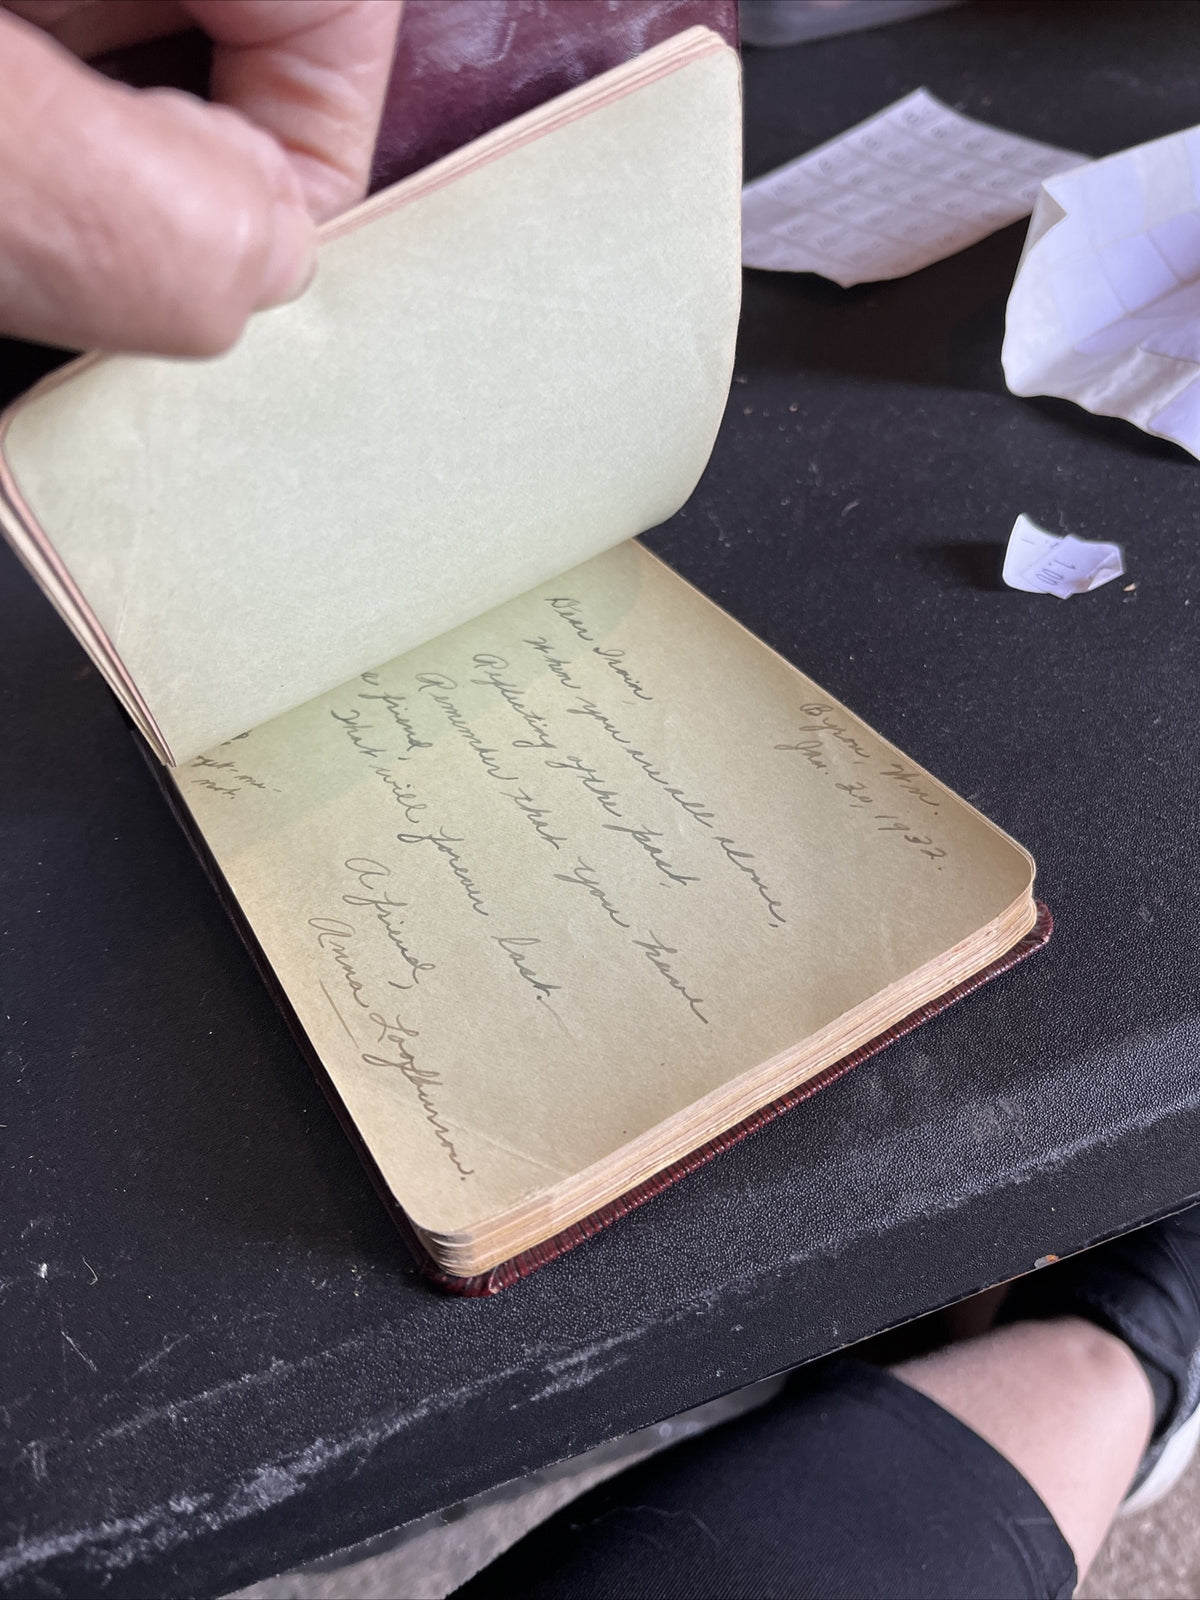 Byron, Wn.
Jan. 20, 1932.
Dear Irvin,
When you are all alone,
Reflecting of the past.
Remember that you have
a friend,
That will forever last.
A friend,
Anna
me-
not.
1.00